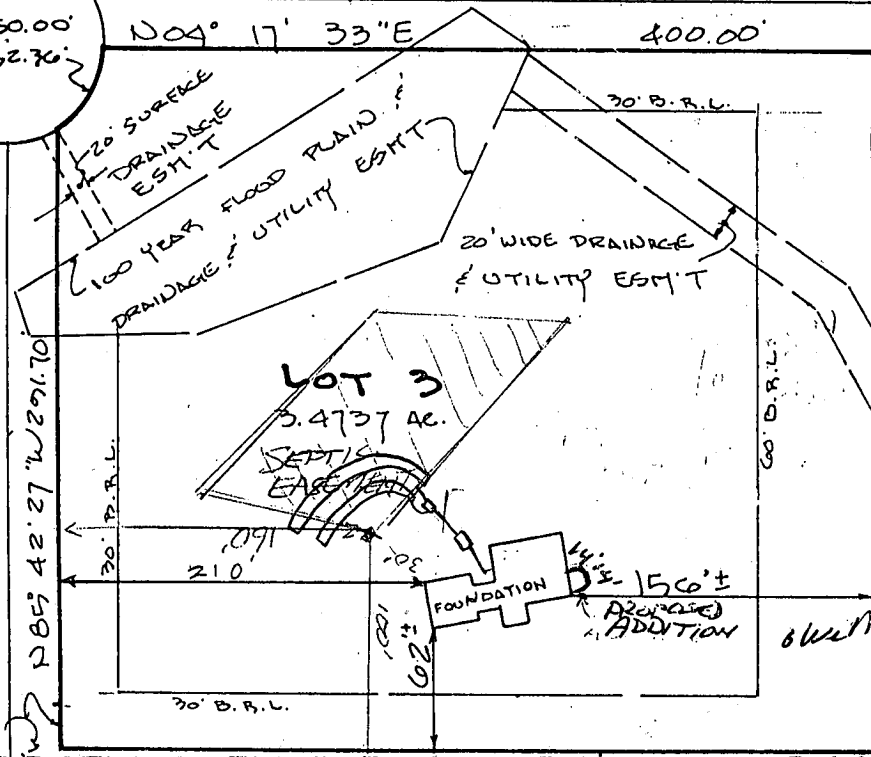 50.00'
52.36'
N04° 17' 33"E
400.00'
20' SURFACE
DRAINAGE
ESM'T
100 YEAR FLOOD PLAIN &
DRAINAGE & UTILITY ESM'T
30' B.R.L.
20' WIDE DRAINAGE
& UTILITY ESM'T
LOT 3
3.4737 AC.
SEPTIC
EASEMENT
N 85° 42' 27" W 291.70
30' B.R.L.
60' B.R.L.
160'
210'
30'
100'
62'±
FOUNDATION
14'
156'±
PROPOSED
ADDITION
Well
30' B.R.L.